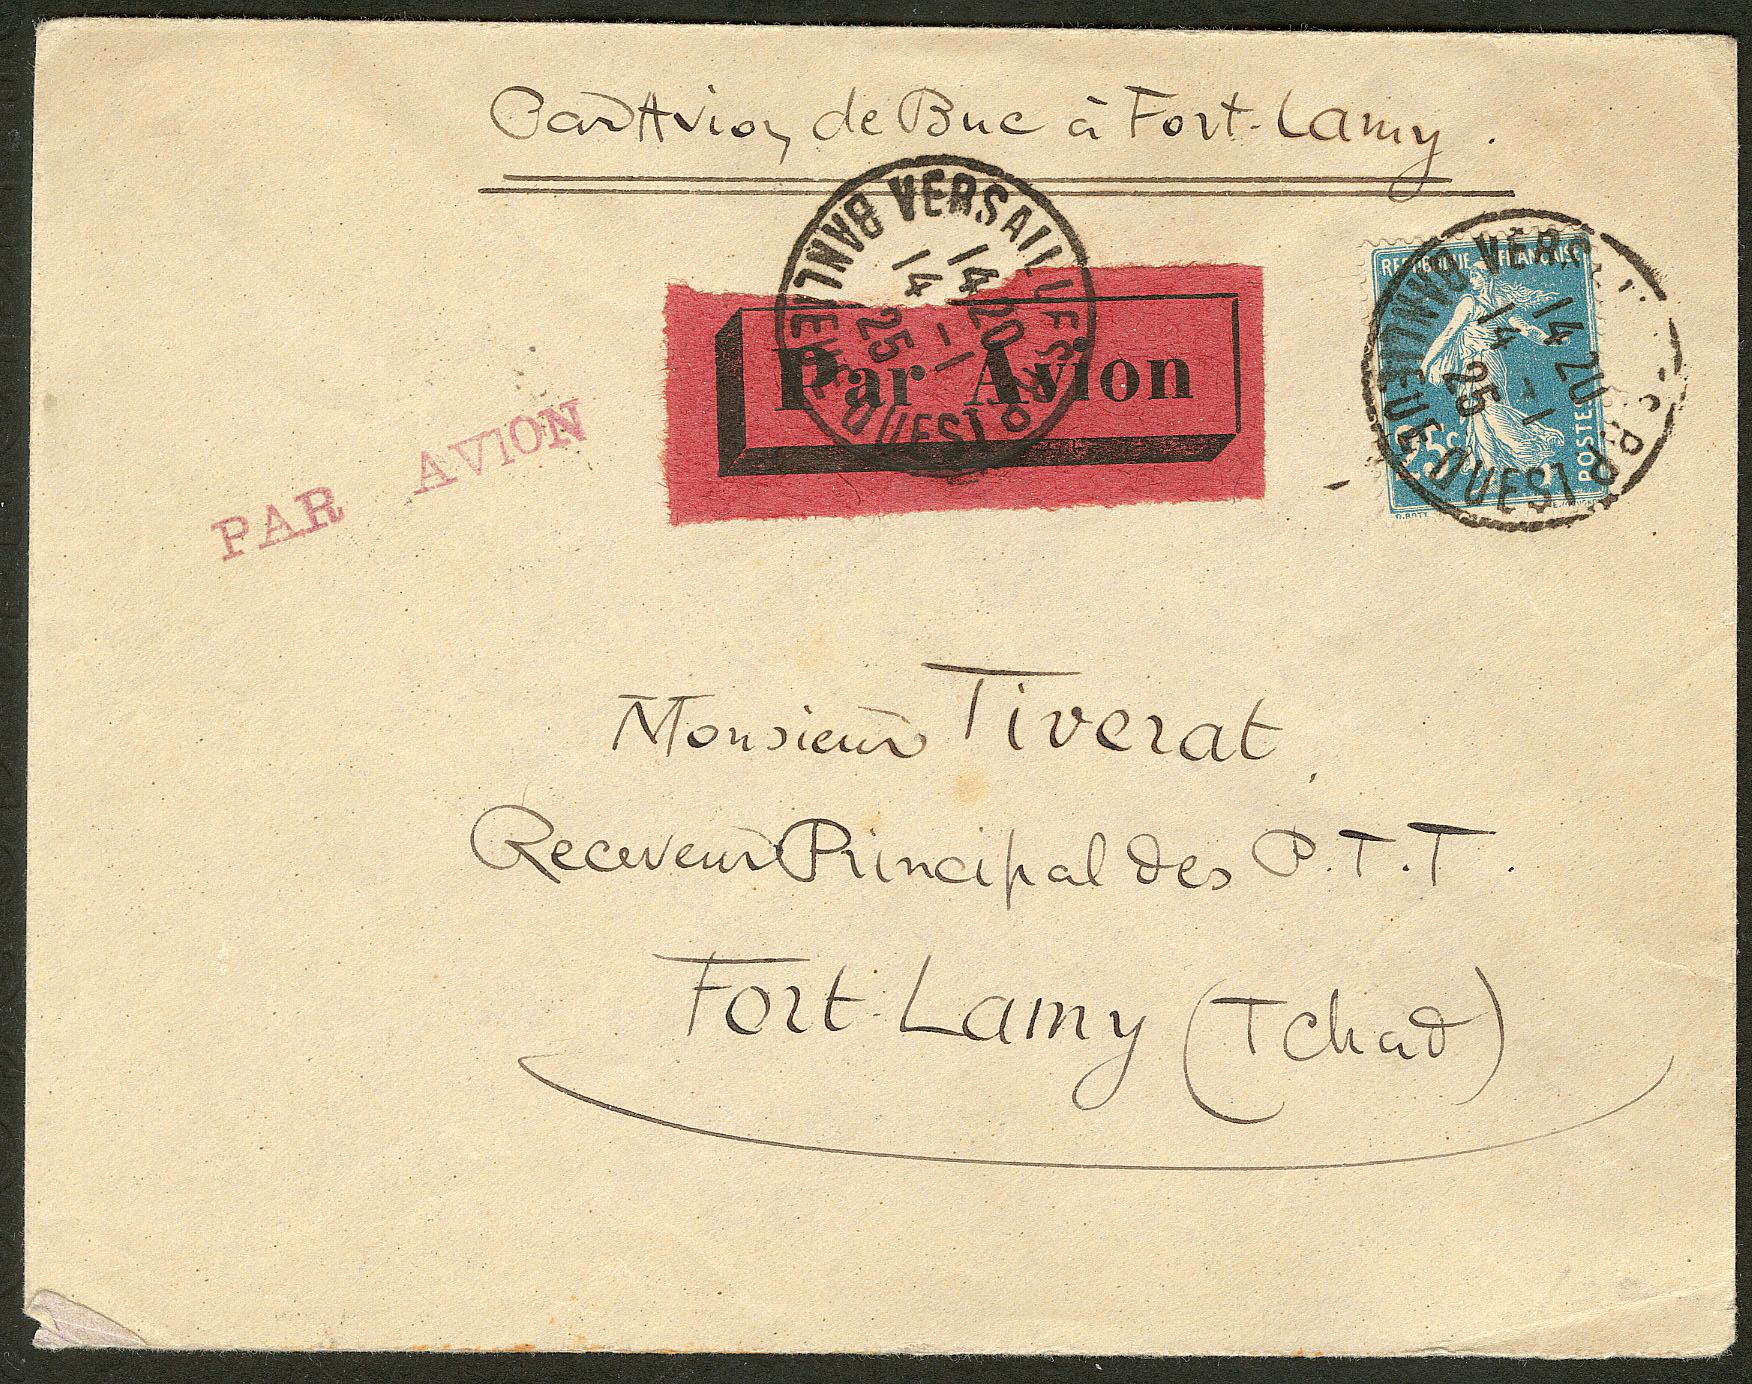 Par Avion, de Buc à Fort-Lamy.
VERSAILLES RP
BANLIEUE OUEST
14 20
14 - 1
25
Par Avion
REPUBLIQUE FRANÇAISE
25c
POSTES
BANLIEUE OUEST
14 20
14 - 1
25
PAR AVION
Monsieur Tiverat
Receveur Principal des P.T.T.
Fort-Lamy (Tchad)